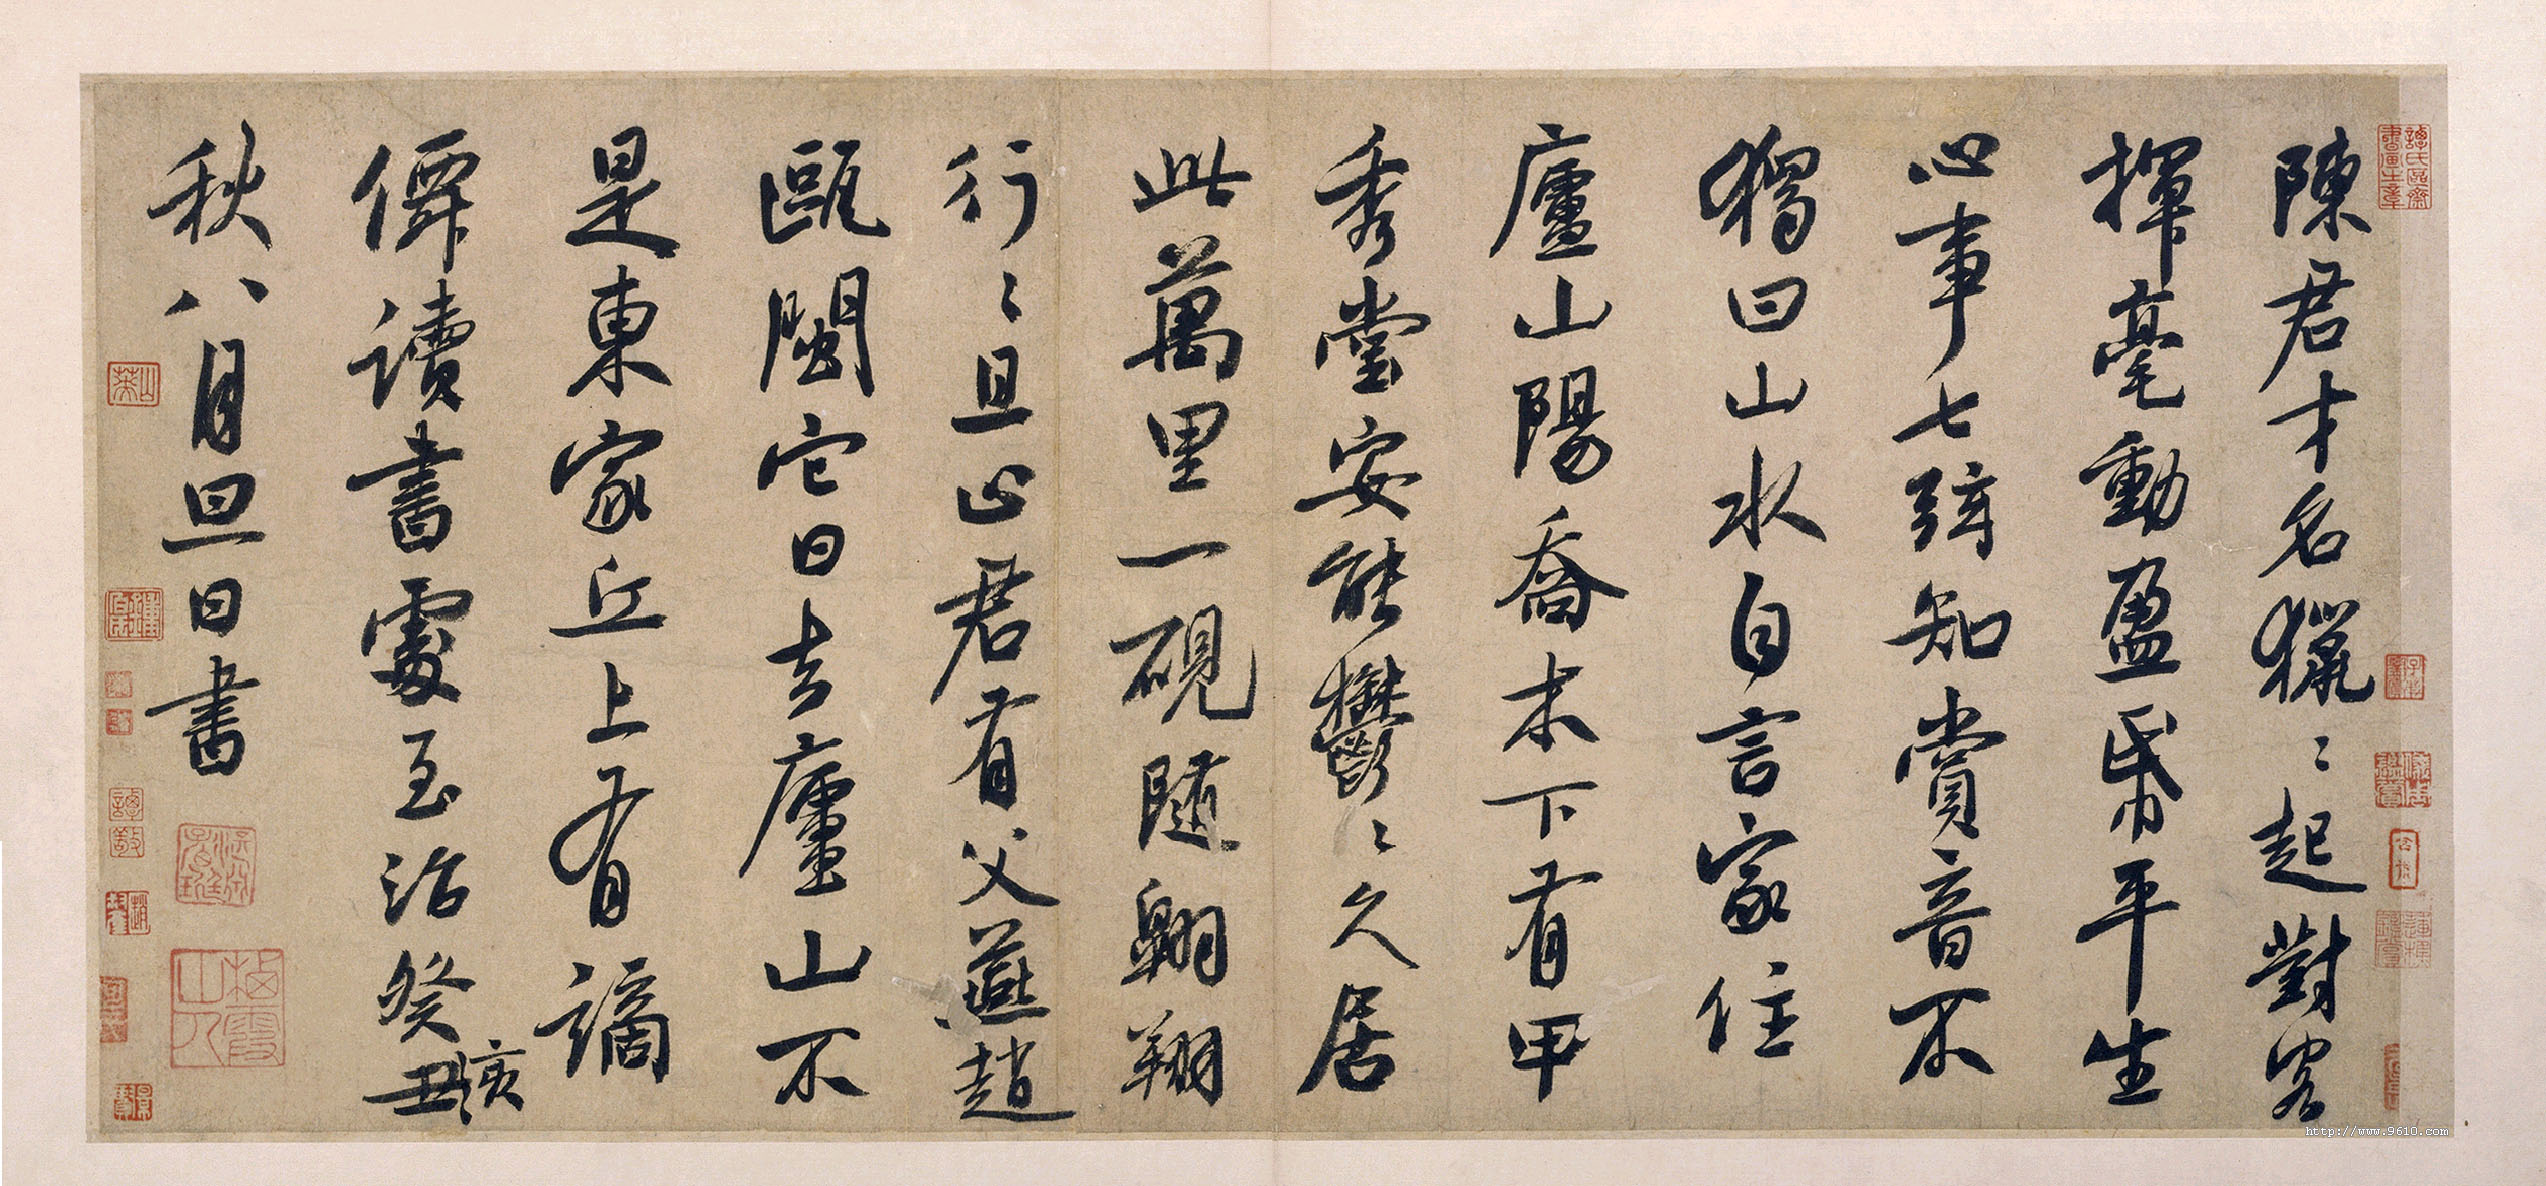 陳君才名獵〻起對客
揮毫動盈帋平生
心事七弦知賞音不
獨曰山水自言家住
廬山陽喬木下有甲
秀堂安能鬱〻久居
此萬里一硯隨翺翔
行〻且止君有父燕趙
甌閩它日去廬山不
是東家丘上有謫
僊讀書處至治癸
丑亥
秋八月旦日書
譚氏區齋書畫之章
譚敬
http://www.9610.com